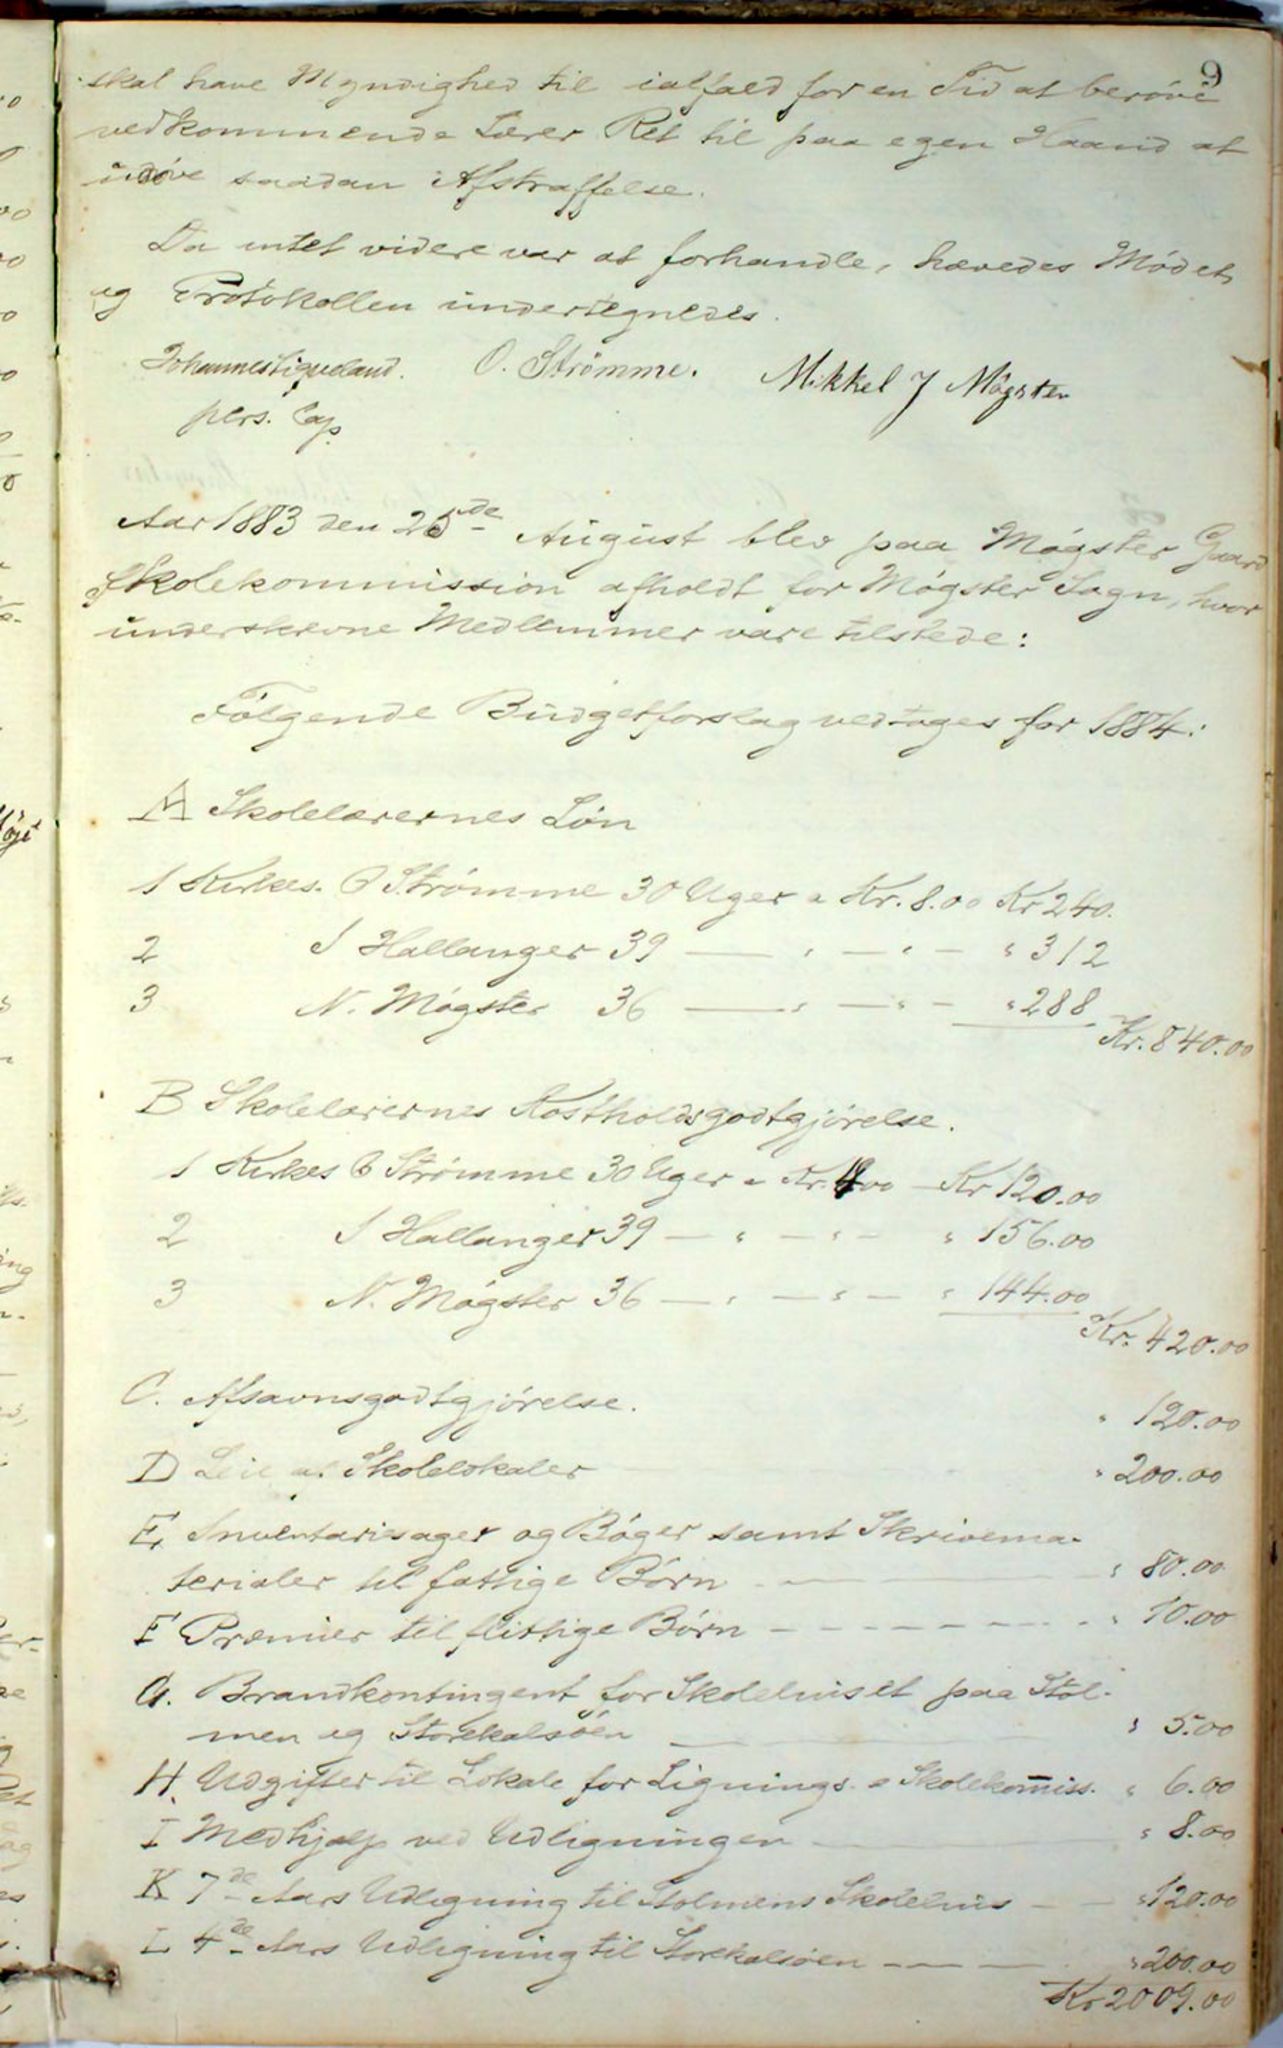 9
skal have Myndighed til ialfald for en Tid at berøve
vedkommende Lærer Ret til paa egen Haand at
udøve saadan Afstraffelse.
Da intet videre var at forhandle, hævedes Mødet,
og Protokollen undertegnedes.
Johannes Liqueland. O. Strömme. Mikkel J Møgster
pers. Cap
Aar 1883 den 25de August blev paa Møgster Gaard
Skolekommission afholdt for Møgster Sogn, hvor
underskrevne Medlemmer vare tilstede:
Følgende Budgetforslag vedtages for 1884:
A Skolelærernes Løn
1 Kirkes. O Strømme 30 Uger a Kr. 8.00 Kr 240.
2 S Hallanger 39 — " — " — " 312
3 N. Møgster 36 — " — " — " 288
Kr. 840.00
B Skolelærernes Kostholdsgodtgjørelse.
1 Kirkes O Strømme 30 Uger a Kr. 4.00 — Kr 120.00
2 S Hallanger 39 — " — " — " 156.00
3 N. Møgster 36 — " — " — " 144.00
Kr. 420.00
C. Afsavnsgodtgjørelse. " 120.00
D Leie af Skolelokaler " 200.00
E, Inventariesager og Bøger samt Skrivema-
terialer til fattige Børn — " 80.00
F Præmier til flittige Børn — — — — — " 10.00
G. Brandkontingent for Skolehuset paa Stol-
men og Storekalsøen — " 5.00
H. Udgifter til Lokale for Lignings- o Skolekom̅iss. " 6.00
I Medhjælp ved Udligningen — " 8.00
K 7de Aars Udligning til Stolmens Skolehus — — " 120.00
L 4de Aars Udligning til Storekalsøen — — — " 200.00
Kr 2009.00